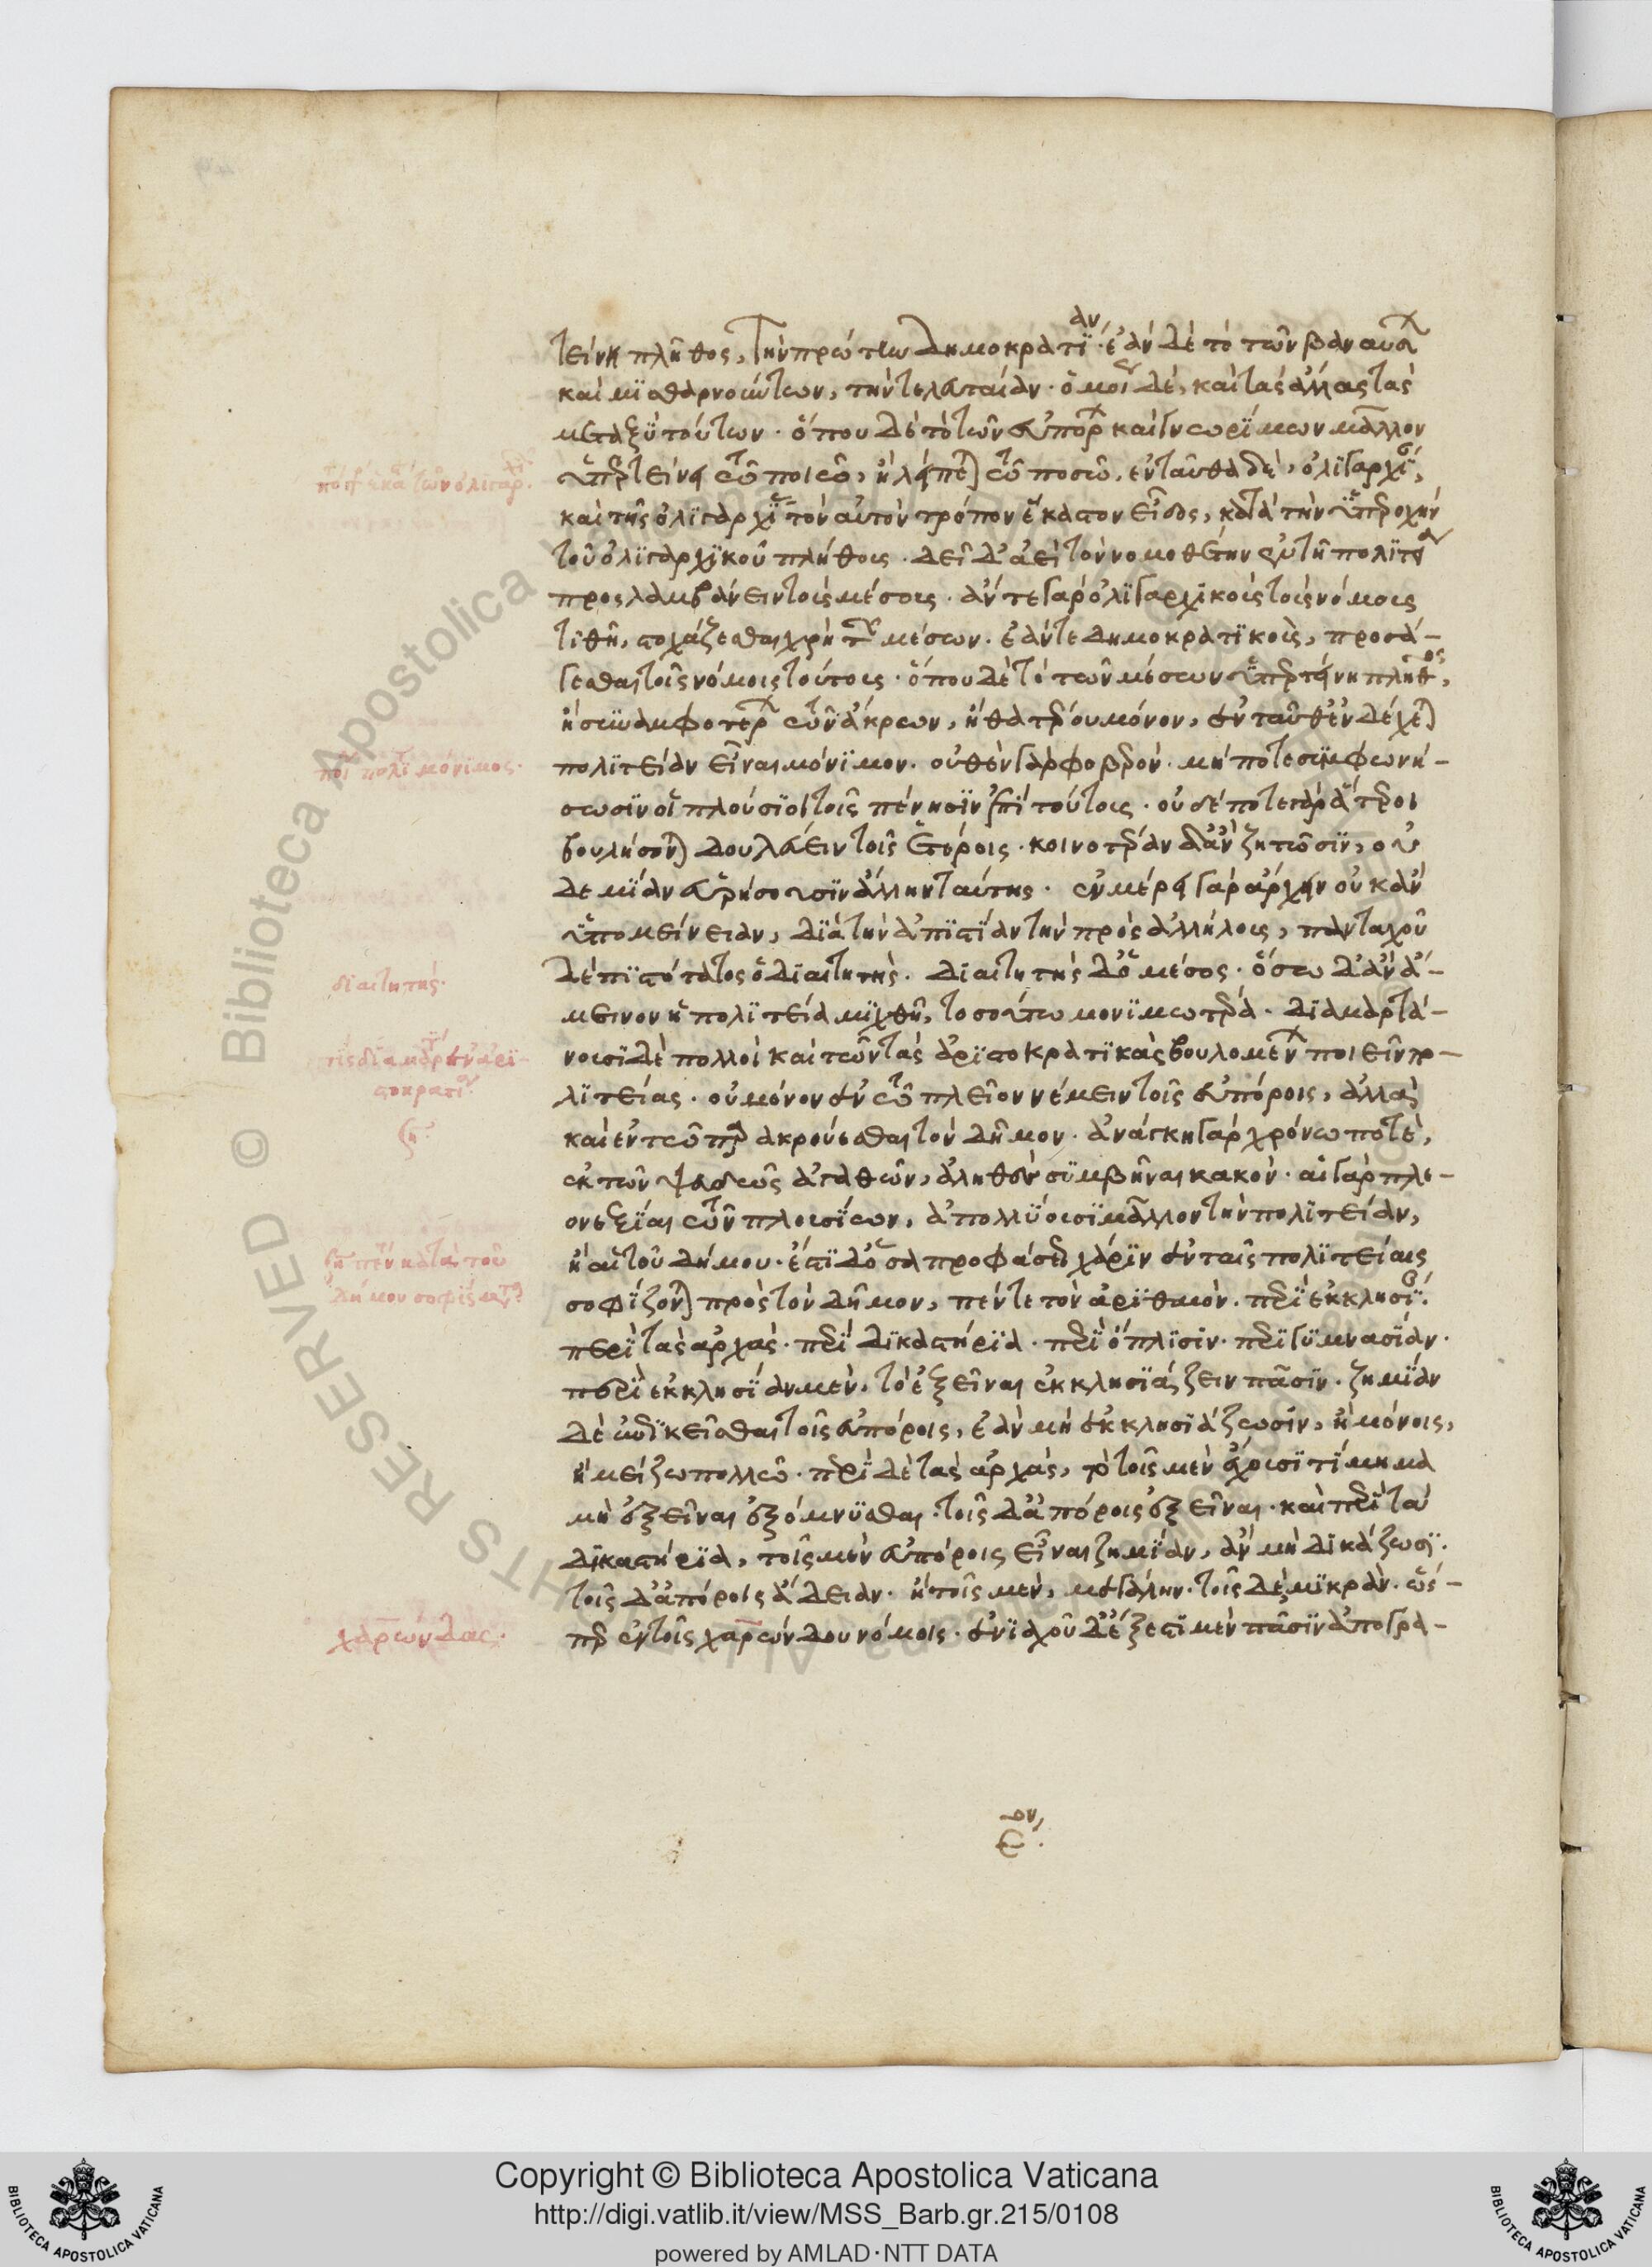 τείνη πλῆθος, τὴν πρώτην δημοκρατίαν· ἐὰν δὲ τὸ τῶν βαναύσων
καὶ μισθαρνούντων, τὴν τελευταίαν· ὁμοίως δὲ, καὶ τὰς ἄλλας τὰς
μεταξὺ τούτων· ὅπου δὲ τὸ τῶν εὐπόρων καὶ γνωρίμων μᾶλλον
ὑπερτείνει τῶ ποιῶ, ἢ λείπεται τῶ ποσῶ, ἐνταῦθα δὲ, ὀλιγαρχίαν,
καὶ τῆς ὀλιγαρχίας τὸν αὐτὸν τρόπον ἕκαστον εἶδος, κατὰ τὴν ὑπεροχὴν
τοῦ ὀλιγαρχικοῦ πλήθους· δεῖ δ' ἀεὶ τὸν νομοθέτην ἐν τῆ πολιτεία
προσλαμβάνειν τοὺς μέσους· ἄν τε γὰρ ὀλιγαρχικοὺς τοὺς νόμους
τιθῆ, στοχάζεσθαι χρὴ τῶν μέσων· ἐάν τε δημοκρατικοὺς, προσά-
γεσθαι τοῖς νόμοις τούτους· ὅπου δὲ τὸ τῶν μέσων ὑπερτείνη πλῆθος,
ἢ συναμφοτέρων τῶν ἄκρων, ἢ θατέρου μόνον, ἐνταῦθ' ἐνδέχεται
πολιτείαν εἶναι μόνιμον· οὐθὲν γὰρ φοβερὸν μήποτε συμφωνή-
σωσιν οἱ πλούσιοι τοῖς πένησιν ἐπὶ τούτους· οὐδέποτε γὰρ ἅτεροι
βουλήσονται δουλεύειν τοῖς ἑτέροις· κοινοτέραν δ' ἂν ζητῶσιν, οὐ
δεμίαν εὑρήσουσιν ἄλλην ταύτης· ἐν μέρει γὰρ ἄρχειν οὐκ ἂν
ὑπομείνειαν, διὰ τὴν ἀπιστίαν τὴν πρὸς ἀλλήλους, πανταχοῦ
δὲ πιστότατος ὁ διαιτητής· διαιτητὴς δ' ὁ μέσος· ὅσω δ' ἂν ἄ-
μεινον ἡ πολιτεία μιχθῆ, τοσούτω μονιμωτέρα· διαμαρτά-
νουσι δὲ πολλοὶ καὶ τῶν τὰς ἀριστοκρατικὰς βουλομένων ποιεῖν πο-
λιτείας· οὐ μόνον ἐν τῶ πλεῖον νέμειν τοῖς εὐπόροις, ἀλλὰ
καὶ ἐν τῶ παρακρούεσθαι τὸν δῆμον· ἀνάγκη γὰρ χρόνω ποτὲ,
ἐκ τῶν ψευδῶς ἀγαθῶν, ἀληθὲς συμβῆναι κακόν· αἱ γὰρ πλε-
ονεξίαι τῶν πλουσίων, ἀπολλύουσι μᾶλλον τὴν πολιτείαν,
ἢ αἱ τοῦ δήμου· ἔστι δ' ὅσα προφάσεως χάριν ἐν ταῖς πολιτείαις
σοφίζονται πρὸς τὸν δῆμον, πέντε τὸν ἀριθμόν· περὶ ἐκκλησίαν·
περὶ τὰς ἀρχάς· περὶ δικαστήρια· περὶ ὅπλισιν· περὶ γυμνασίαν·
περὶ ἐκκλησίαν μὲν, τὸ ἐξεῖναι ἐκκλησιάζειν πᾶσιν· ζημίαν
δὲ ἐπικεῖσθαι τοῖς εὐπόροις, ἐὰν μὴ ἐκκλησιάζωσιν, ἢ μόνοις,
ἢ μείζω πολλῶ· περὶ δὲ τὰς ἀρχάς, τὸ τοῖς μὲν ἔχουσι τίμημα
μὴ ἐξεῖναι ἐξόμνυσθαι· τοῖς δ' ἀπόροις ἐξεῖναι· καὶ περὶ τὰ
δικαστήρια, τοῖς μὲν εὐπόροις εἶναι ζημίαν, ἂν μὴ δικάζωσι·
τοῖς δ' ἀπόροις ἄδειαν· ἢ τοῖς μὲν, μεγάλην· τοῖς δὲ μικράν· ὥσ-
περ ἐν τοῖς χαρώνδου νόμοις· ἐνιαχοῦ δ' ἔξεστι μὲν πᾶσιν ἀπογρα-
διαιτητής·
χαρώνδας·
Copyright © Biblioteca Apostolica Vaticana
http://digi.vatlib.it/view/MSS_Barb.gr.215/0108
powered by AMLAD·NTT DATA
BIBLIOTECA APOSTOLICA VATICANA
BIBLIOTECA APOSTOLICA VATICANA